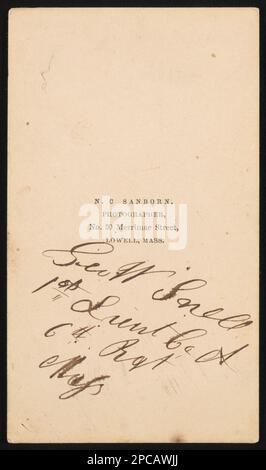 N. C SANBORN,
PHOTOGRAPHER,
No. 50 Merrimac Street,
LOWELL, MASS.
Geo W Snell
1st Lieut Co A
6th Rgt
Mass
alamy
www.alamy.com
2PCAWJJ